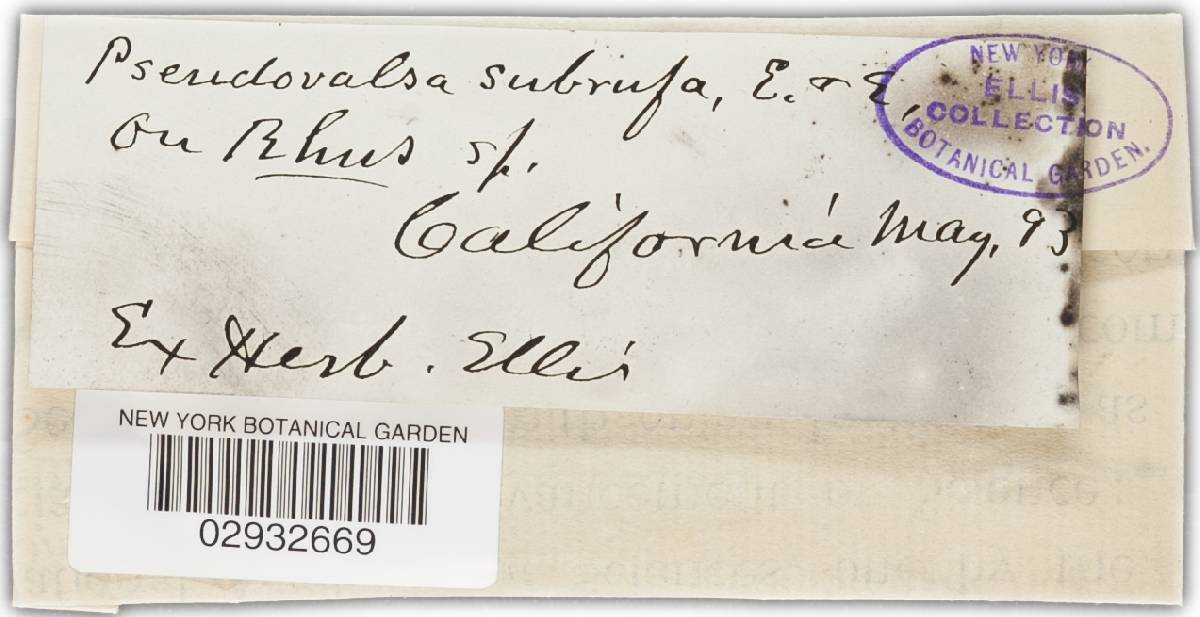 Pseudovalsa subrufa, E. & E.
on Rhus sp.
California May, 93
Ex Herb. Ellis
NEW YORK
ELLIS
COLLECTION
BOTANICAL GARDEN.
NEW YORK BOTANICAL GARDEN
02932669